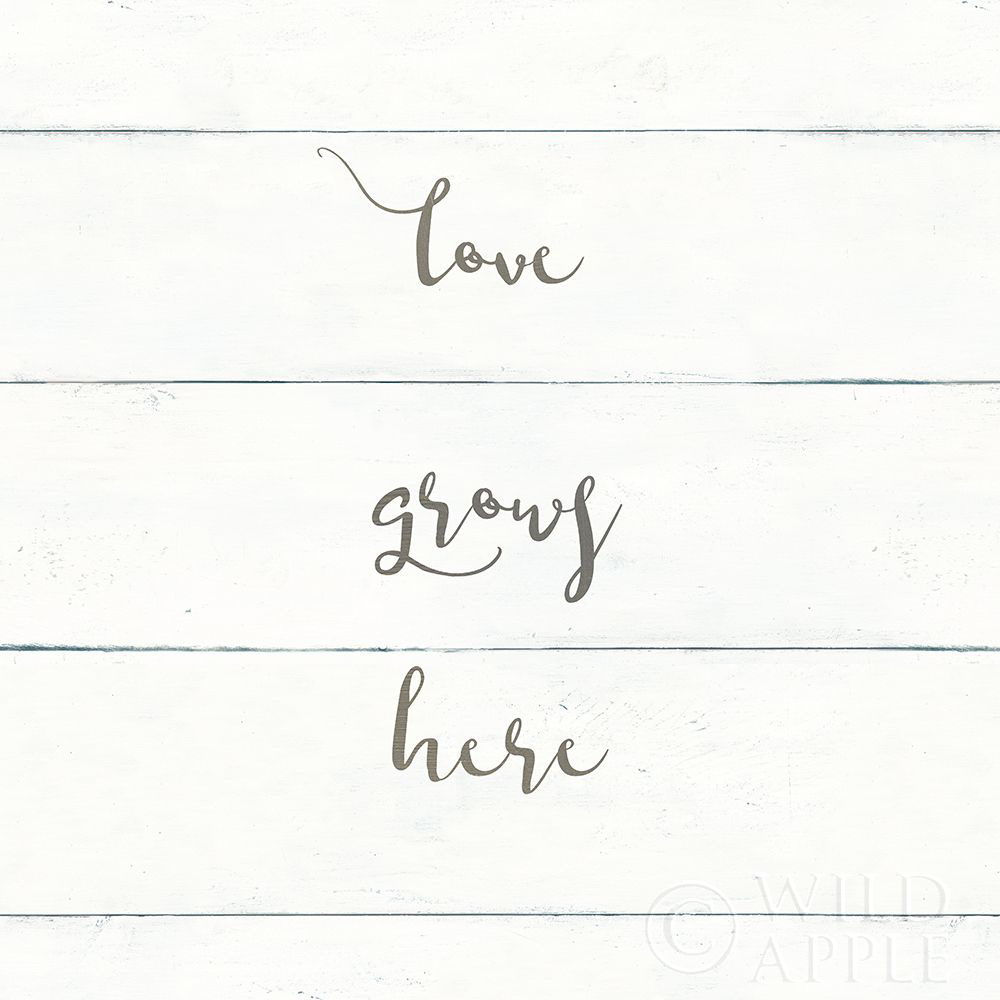 love
grows
here
© WILD
APPLE